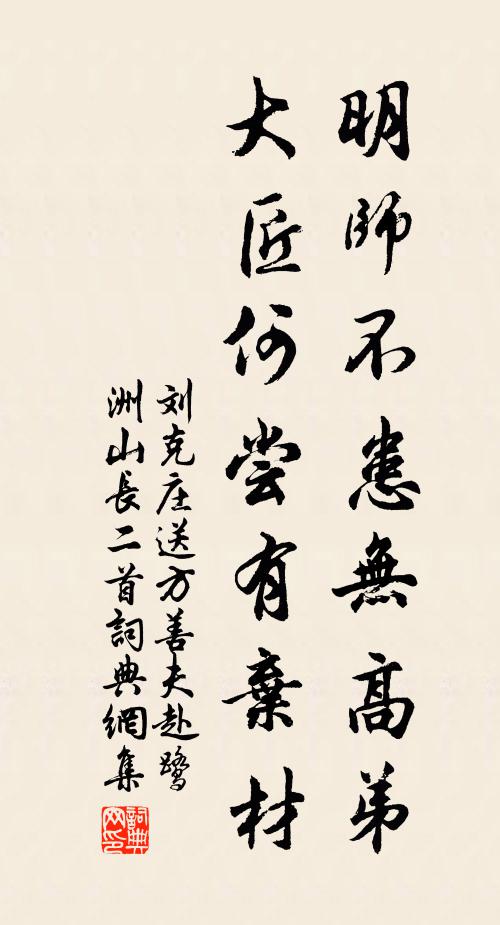 明師不患無高弟
大匠何尝有棄材
刘克庄送方善夫赴鹭
洲山長二首詞典網集
詞典网印